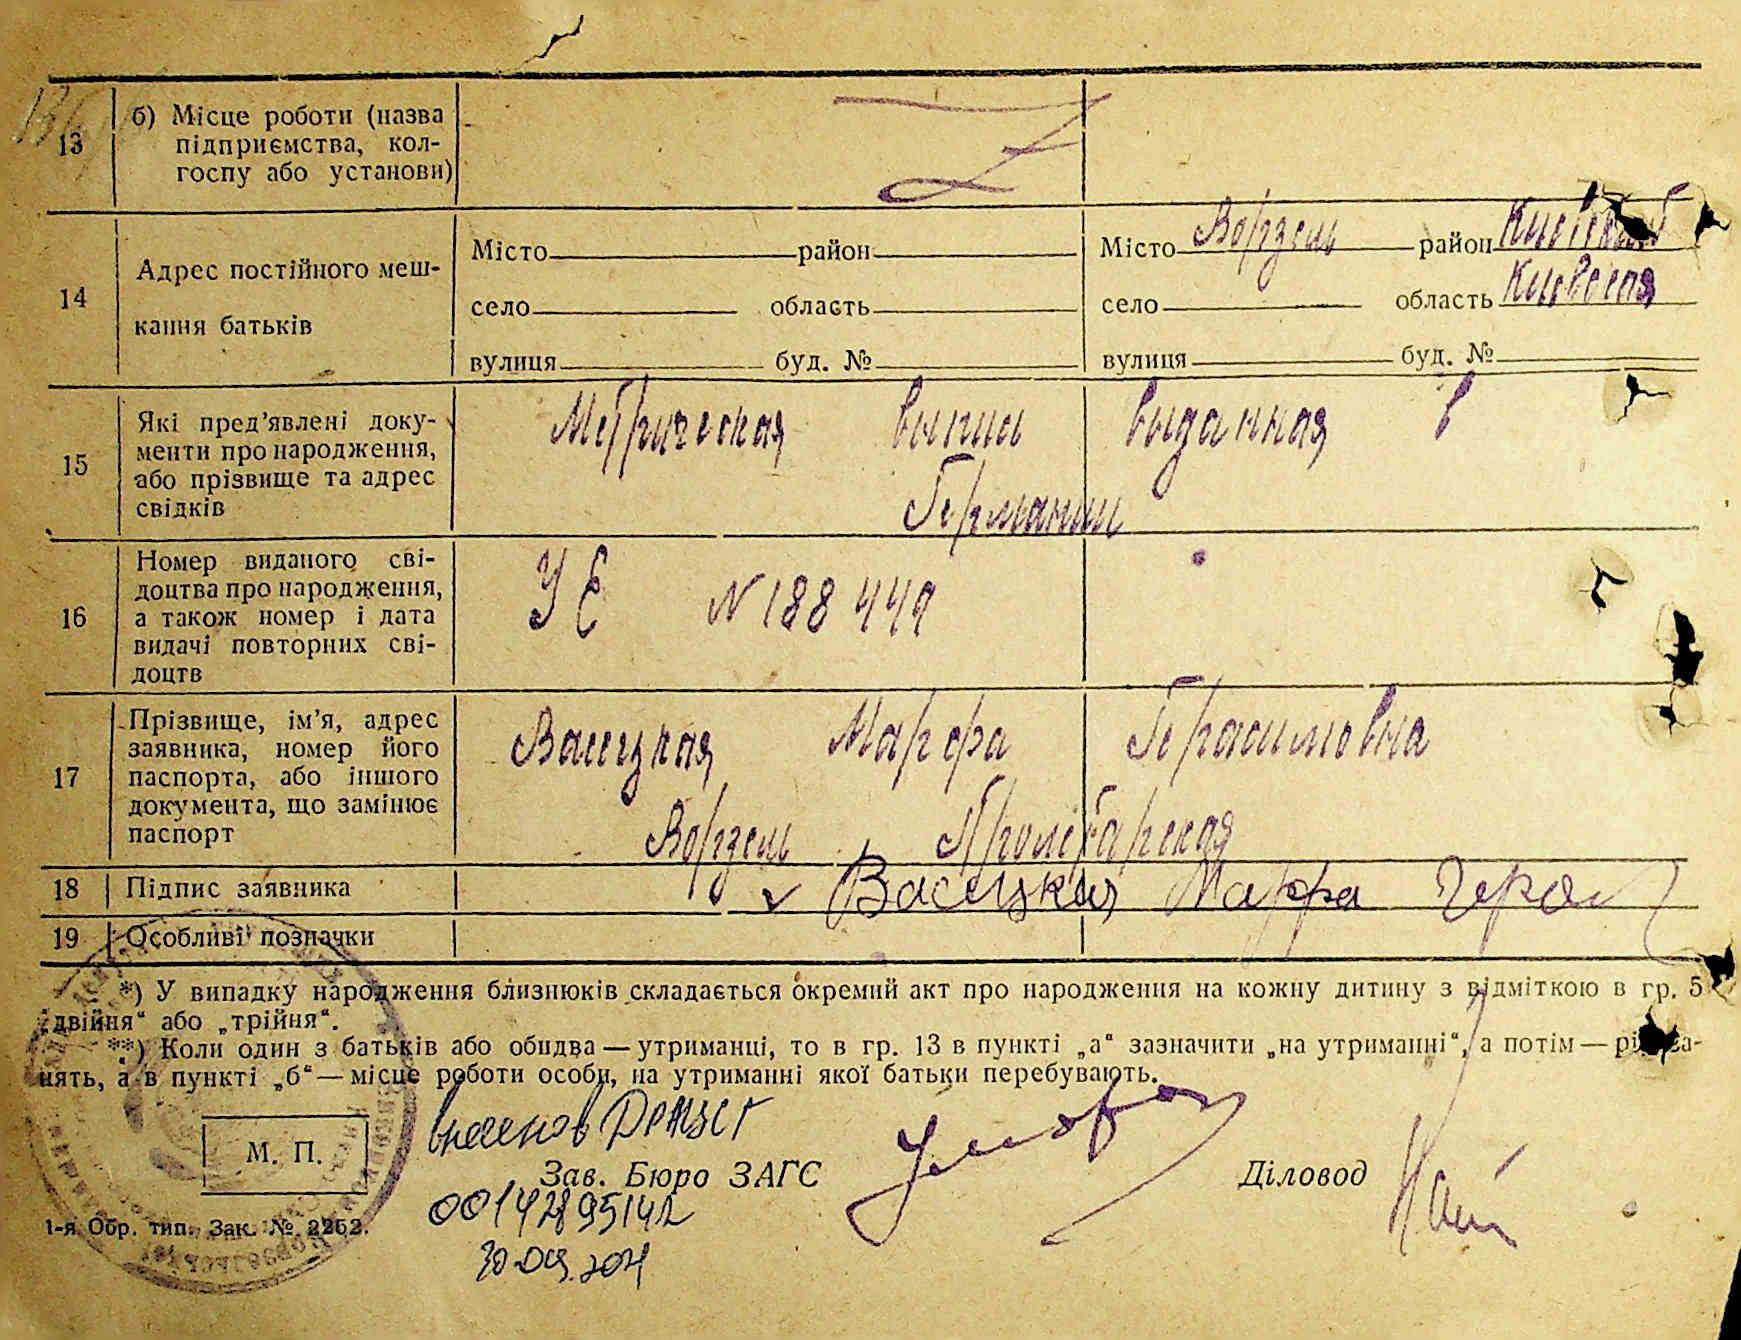 13 б) Місце роботи (назва
підприємства, кол-
госпу або установи)
14 Адрес постійного меш-
кання батьків
Місто район
село область
вулиця буд. №
Місто Ворзель район Киевский
село область Киевская
вулиця буд. №
15 Які пред’явлені доку-
менти про народження,
або прізвище та адрес
свідків
Метрическая выпись выданная в
Германии
16 Номер виданого сві-
доцтва про народження,
а також номер і дата
видачі повторних сві-
доцтв
УЕ N 188449
17 Прізвище, ім’я, адрес
заявника, номер його
паспорта, або іншого
документа, що замінює
паспорт
Васецкая Марфа Герасимовна
Ворзель Пролетарская
18 Підпис заявника Васецкая Марфа Герас
19 Особливі позначки
*) У випадку народження близнюків складається окремий акт про народження на кожну дитину з відміткою в гр. 5
„двійня“ або „трійня“.
**) Коли один з батьків або обидва — утриманці, то в гр. 13 в пункті „а“ зазначити „на утриманні“, а потім —
нять, а в пункті „б“ — місце роботи особи, на утриманні якої батьки перебувають.
М. П.
Зав. Бюро ЗАГС
Діловод
00142895142
30.09.2021
1-я Обр. тип. Зак. № 2262.